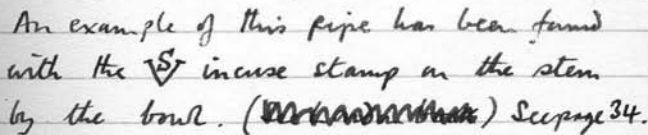 An example of this pipe has been found
with the S incuse stamp on the stem
by the bowl. () See page 34.